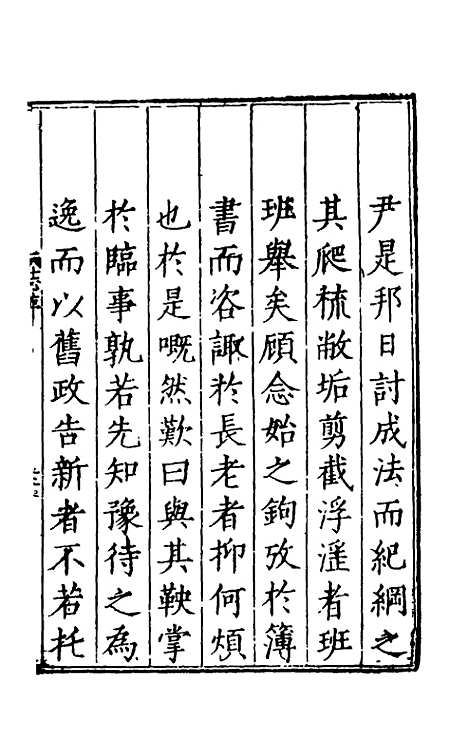 尹是邦日討成法而紀綱之
其爬梳敝垢剪截浮滛者班
班舉矣顧念始之鉤攷於簿
書而咨諏於長老者抑何煩
也於是嘅然歎曰與其鞅掌
於臨事孰若先知豫待之為
逸而以舊政告新者不若托